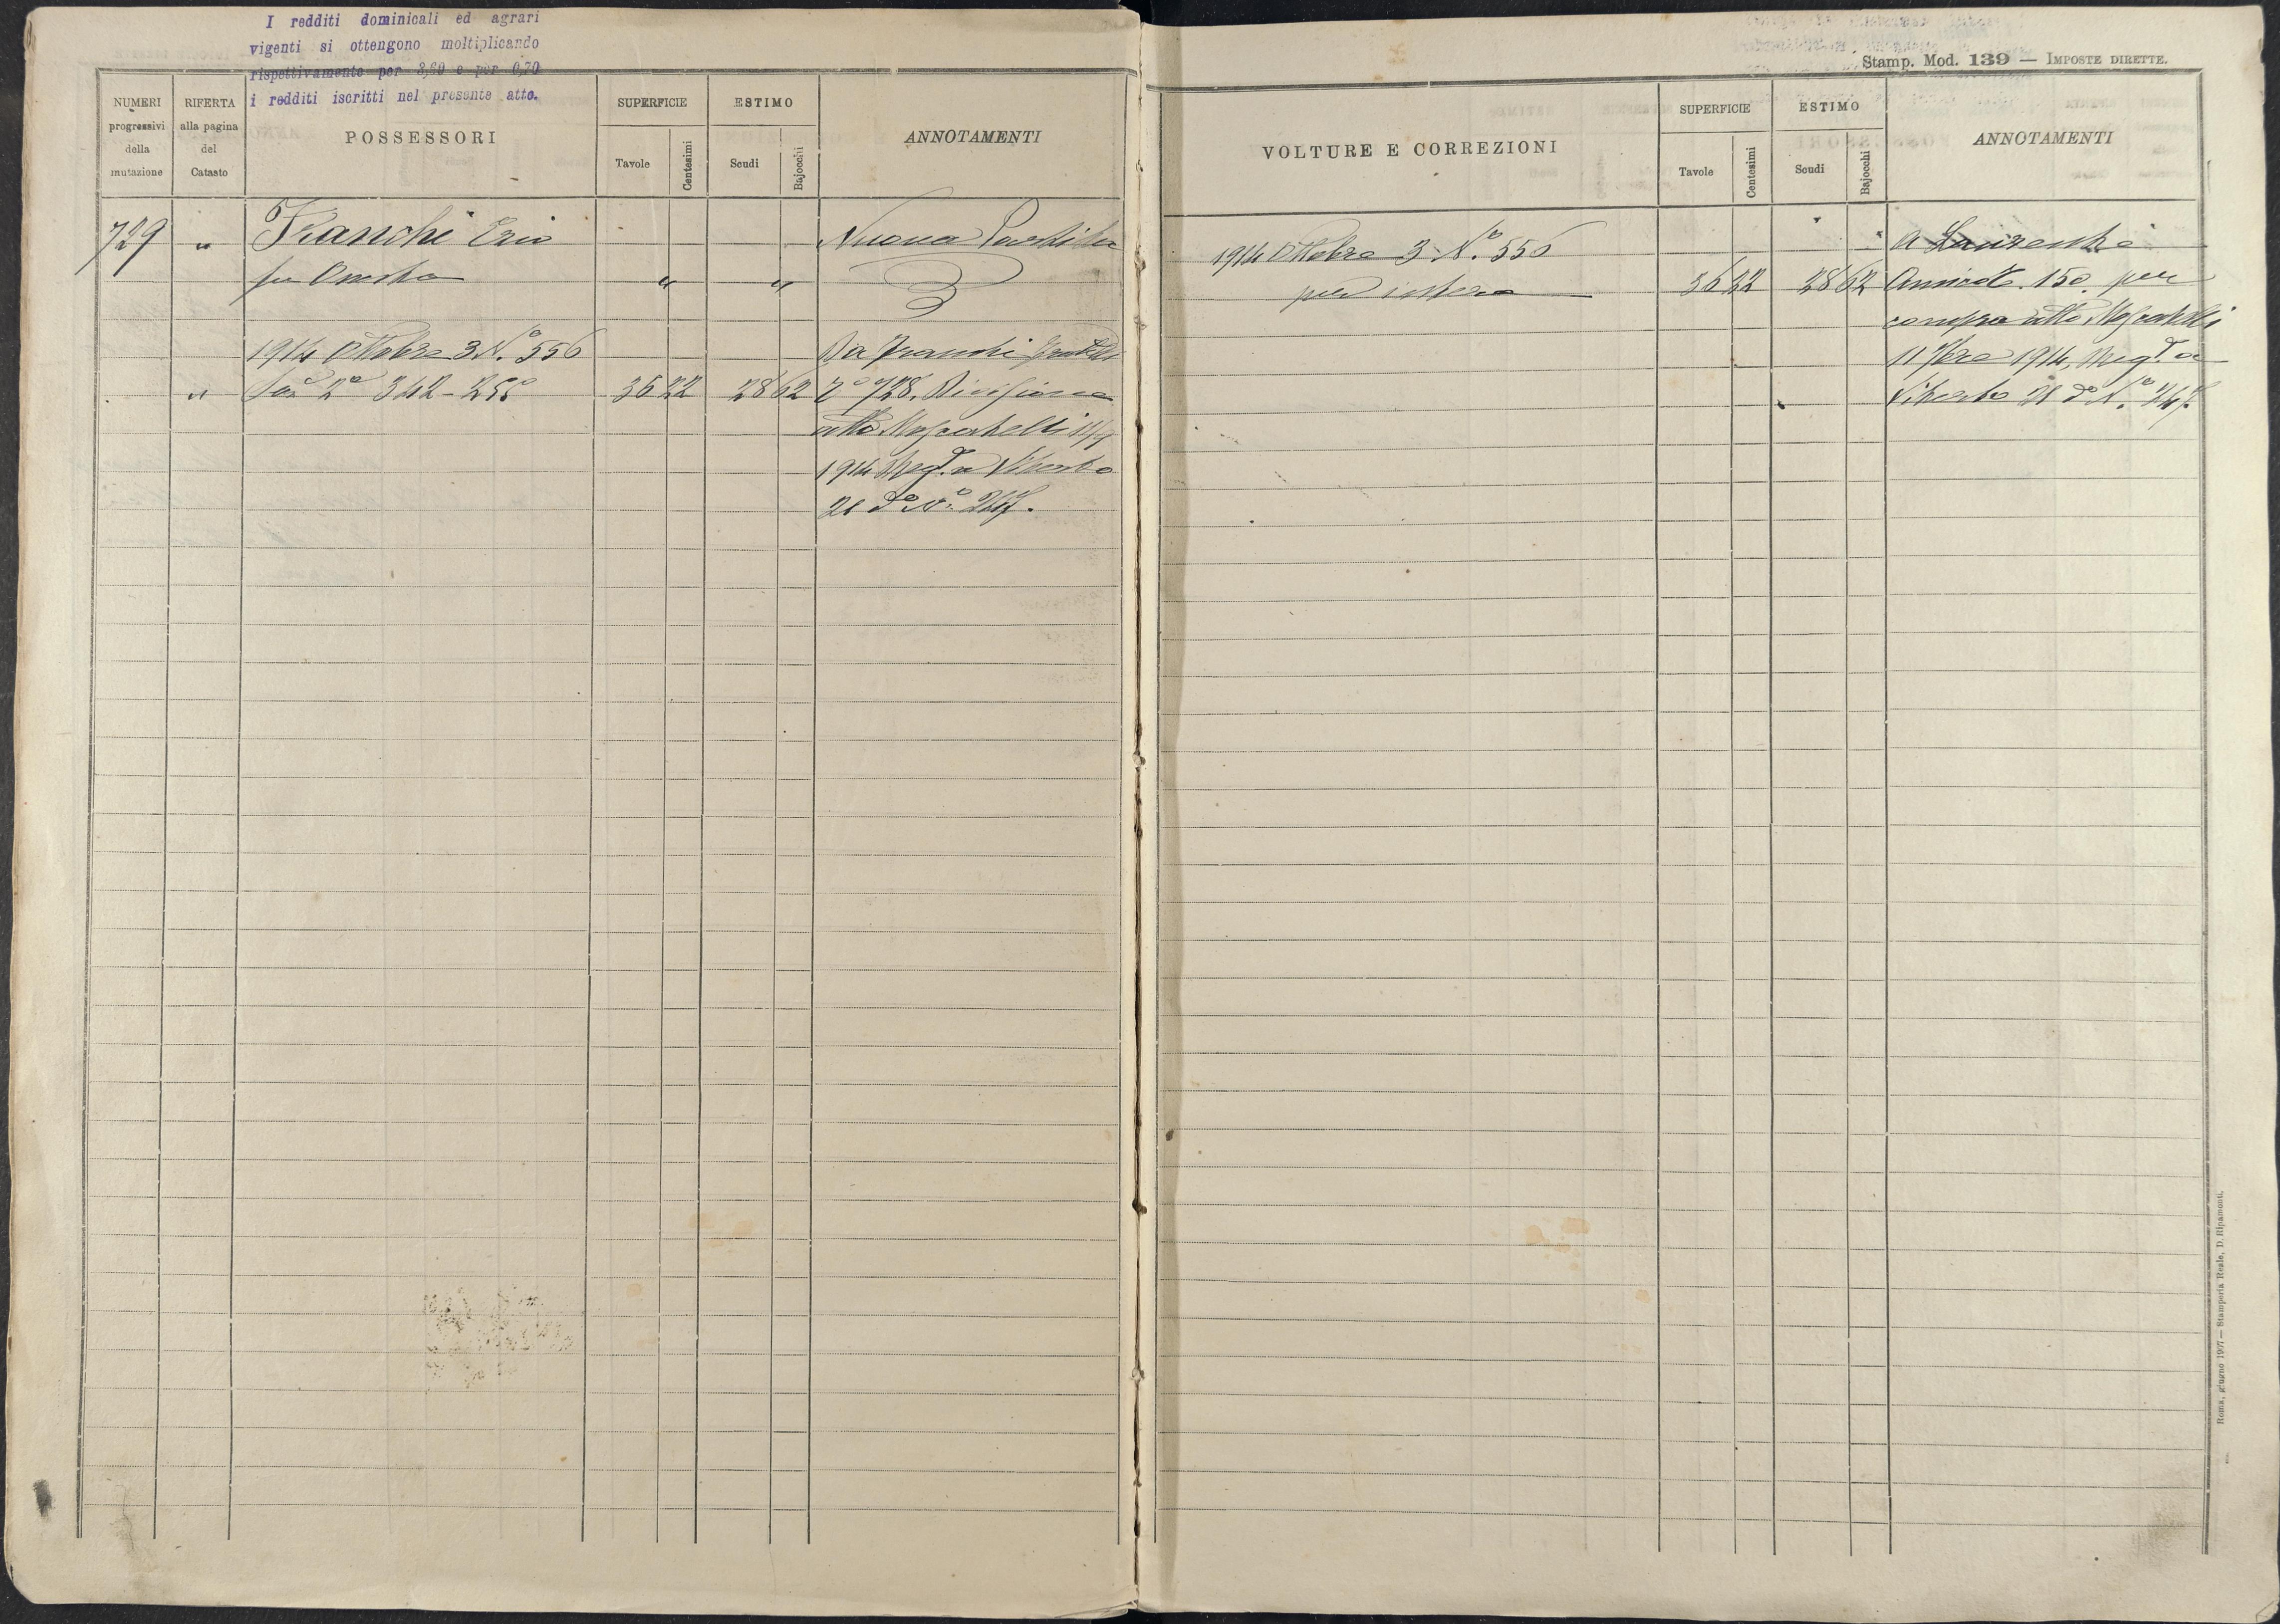 I redditi dominicali ed agrari
vigenti si ottengono moltiplicando
rispettivamente per 8,60 e per 0,70
i redditi iscritti nel presente atto.
NUMERI
progressivi
della
mutazione
RIFERTA
alla pagina
del
Catasto
POSSESSORI
SUPERFICIE
Tavole
Centesimi
ESTIMO
Scudi
Bajocchi
ANNOTAMENTI
729 " Franchi Ezio Nuova Partita
fu Onesto " "
1914 Ottobre 3 N.° 556 Da Franchi Fratelli
" 2a 342 - 36 22 28 62 728. Divisione
atto Moscatelli 11/9
1914 Reg.to a Viterbo
21 do N.° 247.
Stamp. Mod. 139 — IMPOSTE DIRETTE.
VOLTURE E CORREZIONI
SUPERFICIE
Tavole
Centesimi
ESTIMO
Scudi
Bajocchi
ANNOTAMENTI
1914 Ottobre 3 N.° 556 a
per intero 36 22 28 62 150. per
compra atto Moscatelli
11 7bre 1914, Reg.to a
Viterbo 21 do N.° 247
Roma, giugno 1907 — Stamperia Reale, D. Ripamonti.